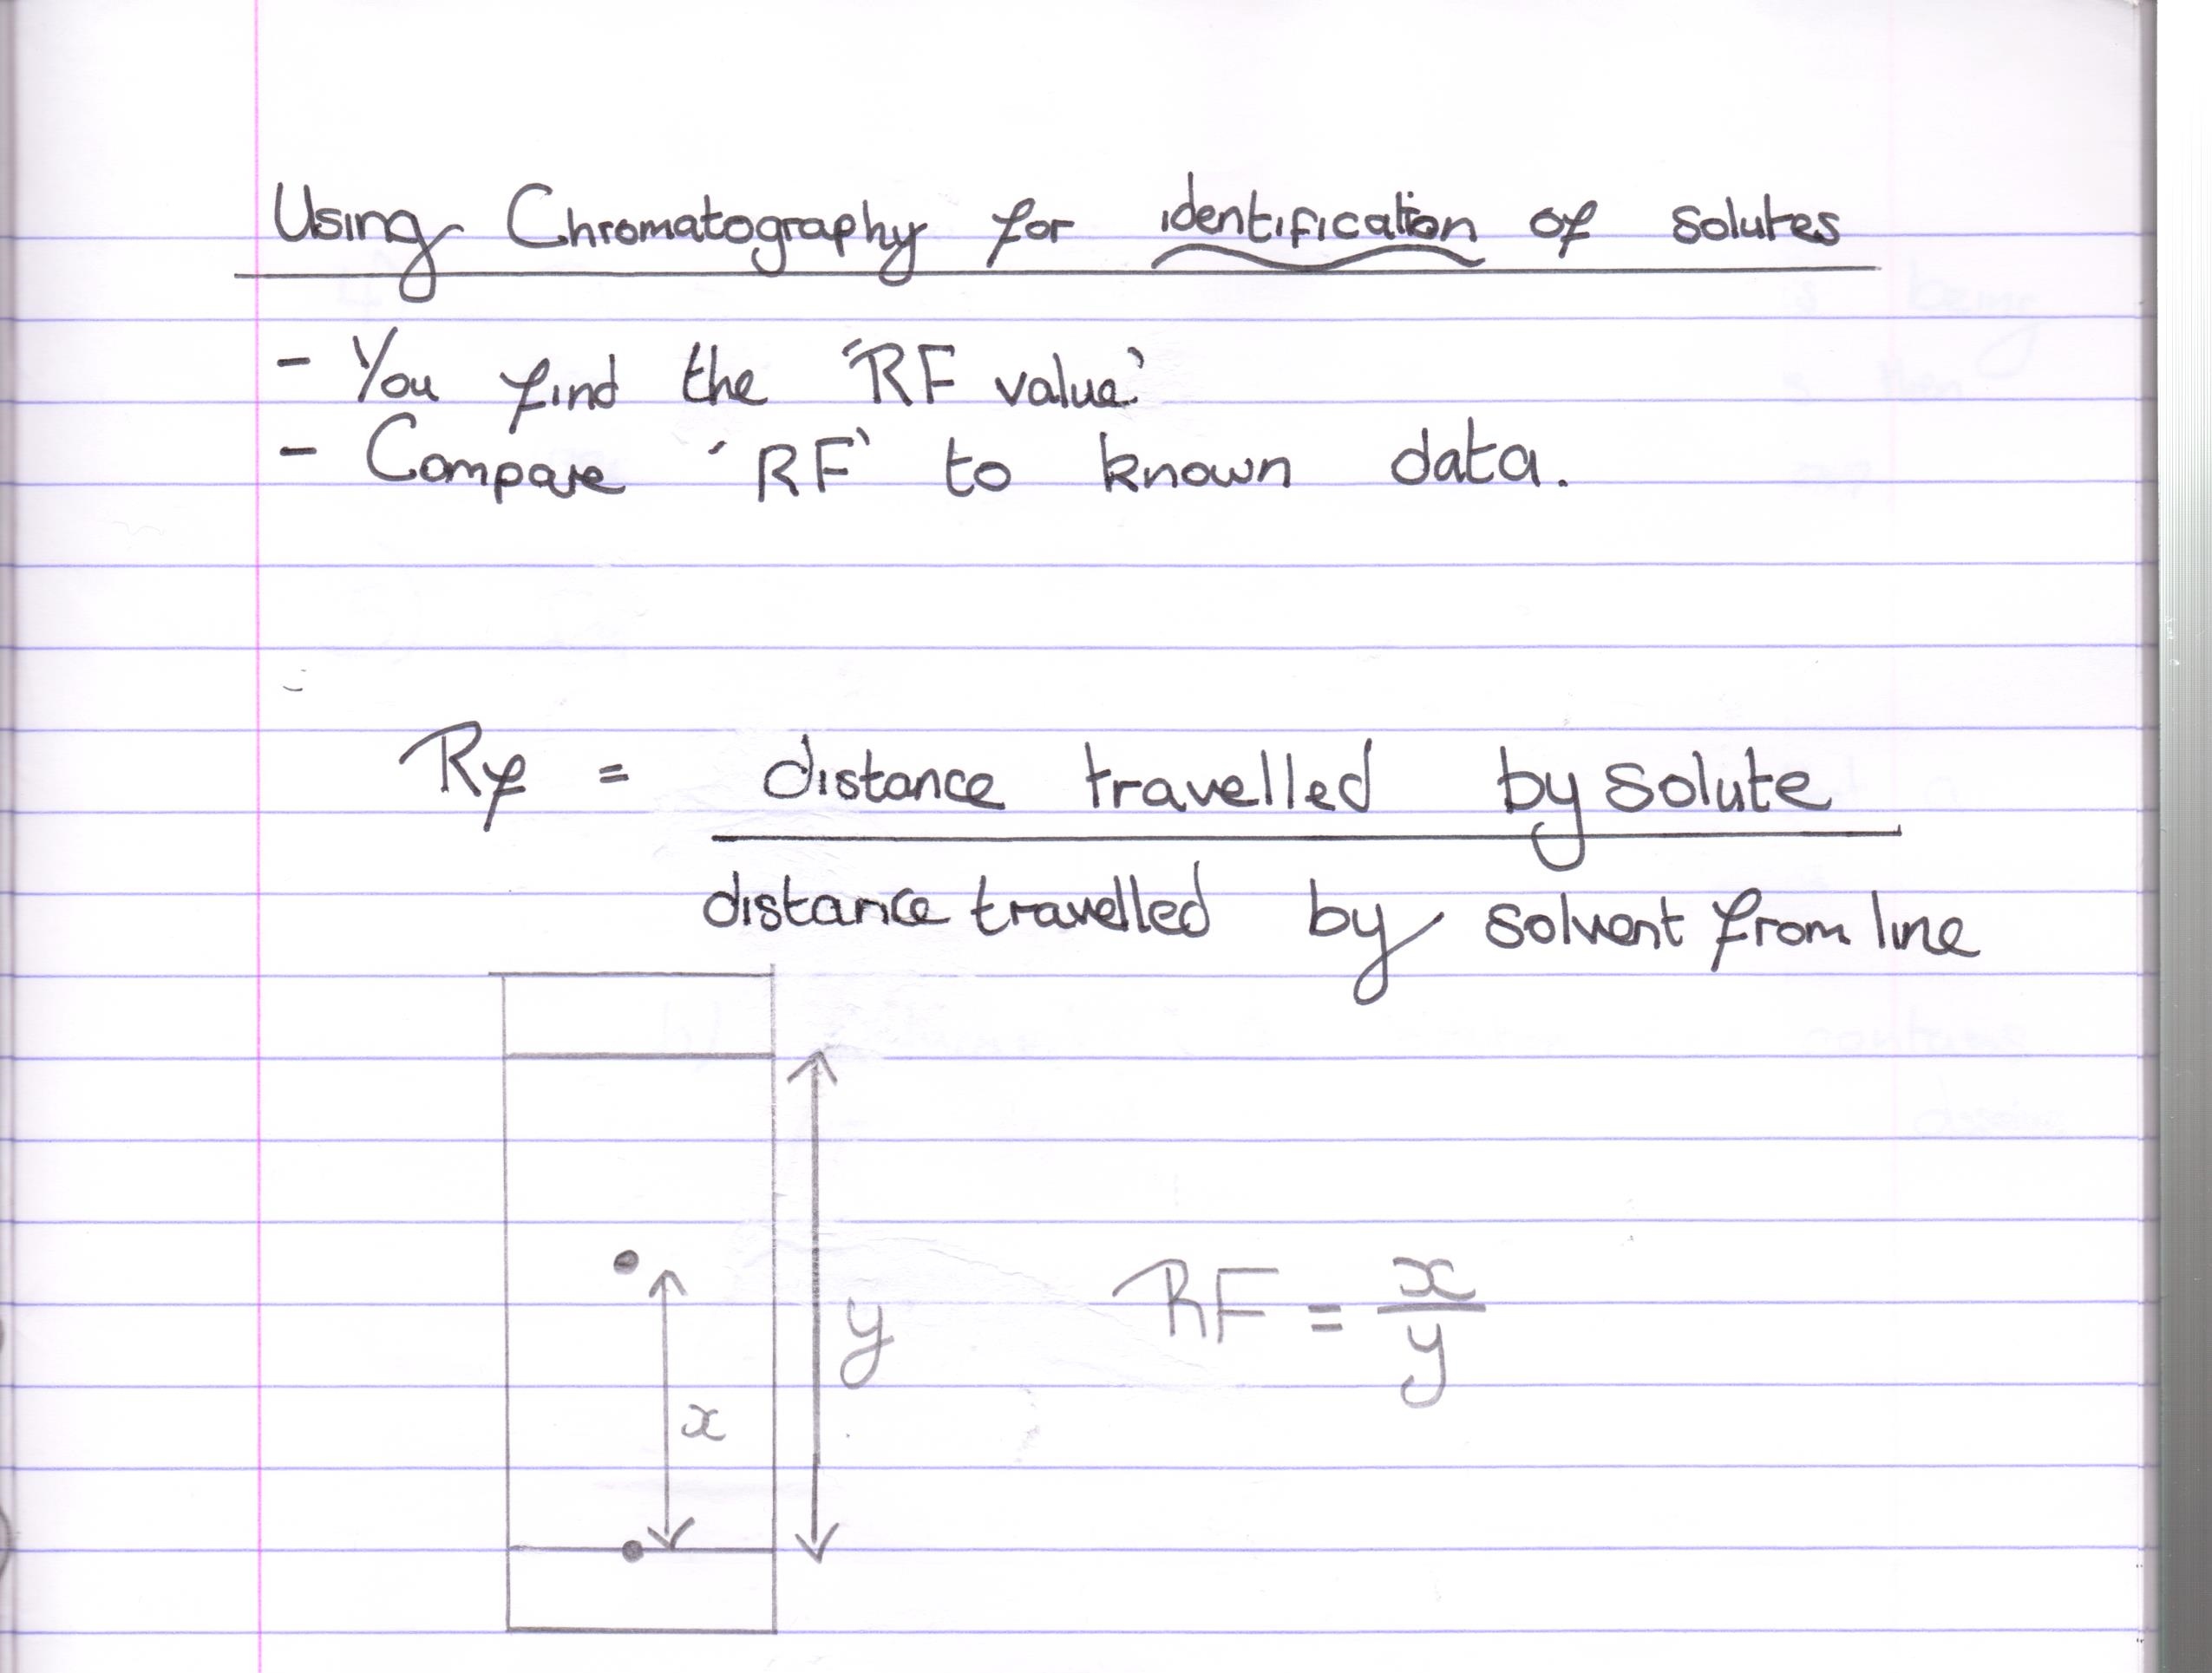 Using Chromatography for identification of solutes
- You find the 'RF value'
- Compare 'RF' to known data.
Rf = distance travelled by solute
distance travelled by solvent from line
y
RF = x
y
x